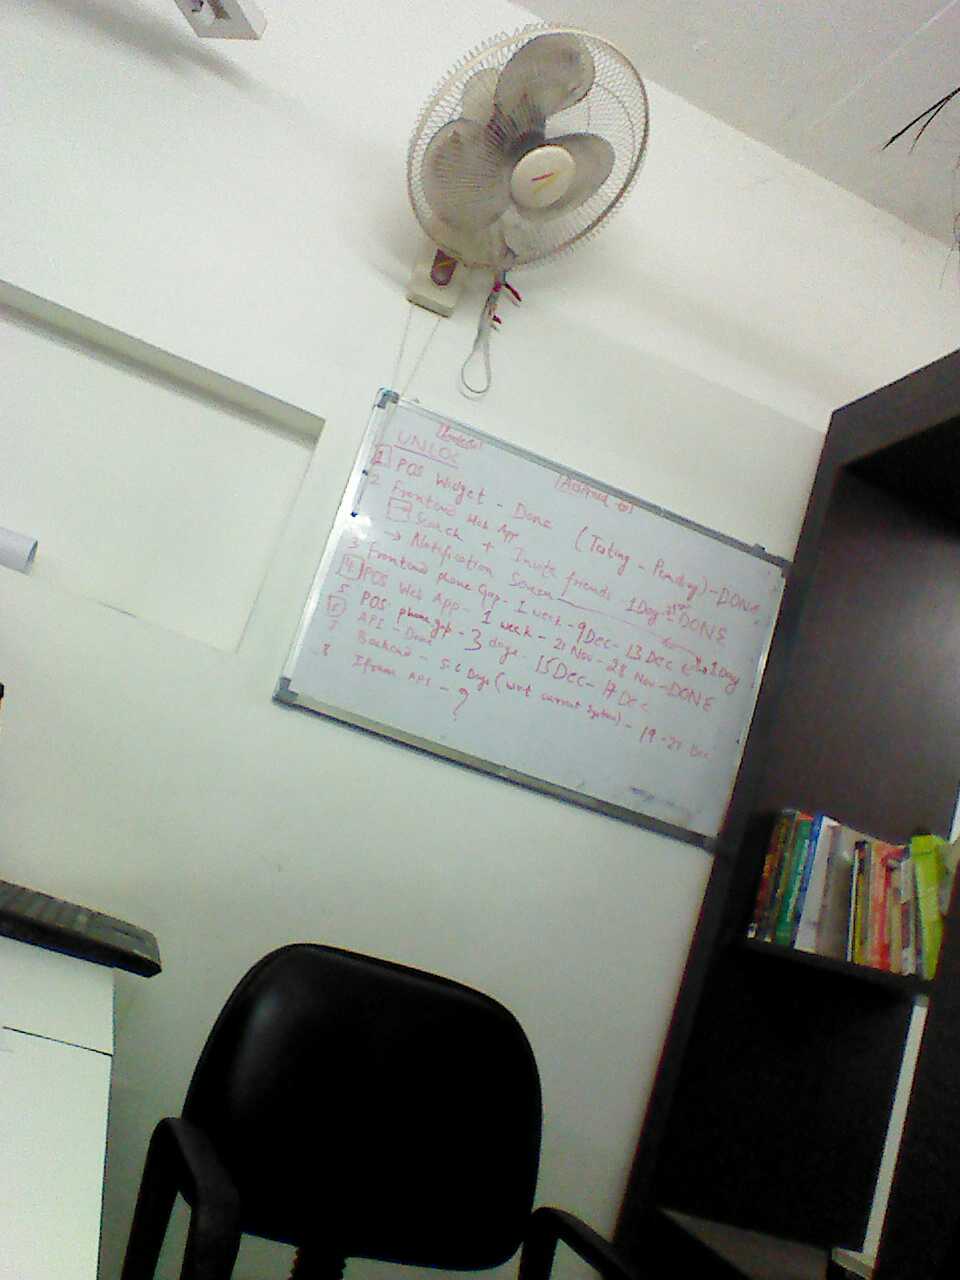 UNLOC
Assigned to
1 POS Widget - Done (Testing - Pending) - DONE
2 Frontend Web App
→ Search + Invite friends - 1 Day - DONE
→ Notification Screen 1 Day
3 Frontend phone Gap - 1 week - 9 Dec - 13 Dec
4 POS Web App - 1 week - 21 Nov - 28 Nov - DONE
5 POS phonegap - 3 days - 15 Dec - 17 Dec
6 API - Done
7 Backend - 5-6 Days (wrt current system) - 19 - 27 Dec
8 Iframe API - ?